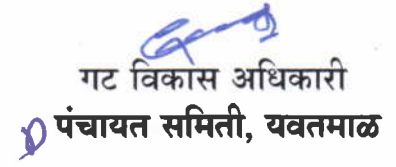 गट विकास अधिकारी
पंचायत समिती, यवतमाळ